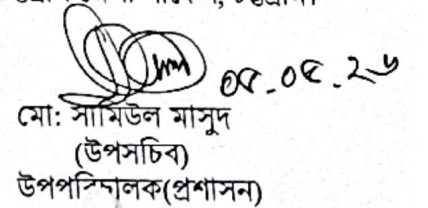 ০৫-০৫-২৬
মো: সামিউল মাসুদ
(উপসচিব)
উপপরিচালক(প্রশাসন)